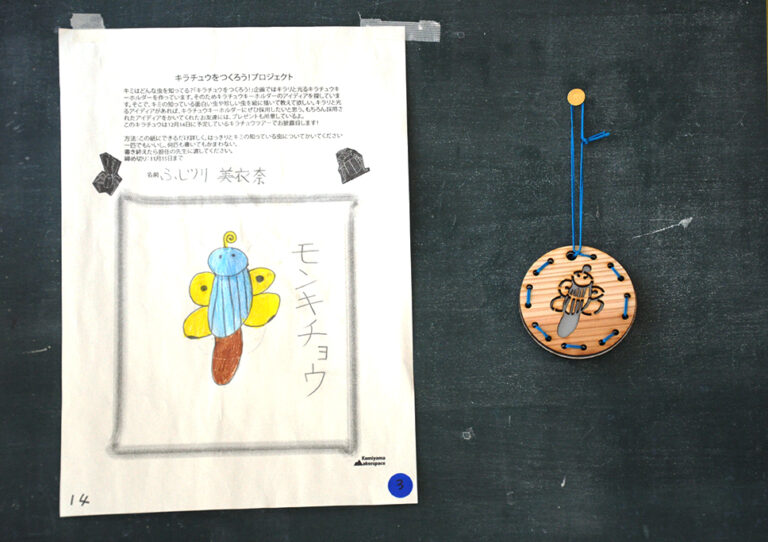 キラチュウをつくろう！プロジェクト
キミはどんな虫を知ってる？「キラチュウをつくろう！」企画ではキラリと光るキラチュウキ
ーホルダーを作っています。そのためキラチュウキーホルダーのアイディアを探していま
す。そこで、キミの知っている面白い虫や珍しい虫を絵に描いて教えて欲しい。キラリと光
るアイディアがあれば、キラチュウキーホルダーにぜひ採用したいと思う。もちろん採用さ
れたアイディアをかいてくれたお友達には、プレゼントも用意しているよ。
このキラチュウは12月14日に予定しているキラチュウツアーでお披露目します！
方法：この紙にできるだけ詳しく、はっきりとキミの知っている虫についてかいてください
一匹でもいいし、何匹も書いてもかまわない。
書き終えたら担任の先生に渡してください。
締め切り：11月15日まで
名前 ふじつり 美衣奈
モンキチョウ
Kamiyama
Makerspace
3
14